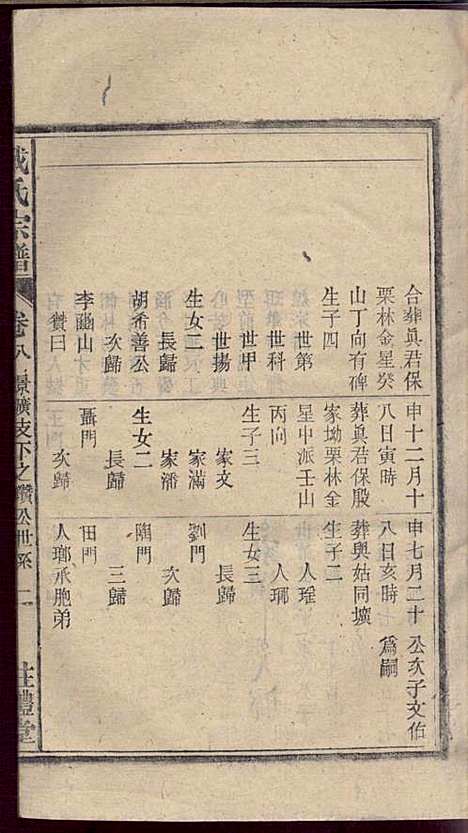 合葬眞君保
栗林金星癸
山丁向有碑
生子四
世第
世科
世甲
世揚
生女二
長歸
胡希善公
次歸
李山
贊曰
申十二月十
八日寅時
葬眞君保殷
家坳栗林金
星中派壬山
丙向
生子三
家文
家滿
家潘
生女二
長歸
聶門
次歸
申七月二十
八日亥時
葬與姑同壙
生子二
人瑤
人瑯
生女三
長歸
劉門
次歸
陶門
三歸
田門
人瑯承胞弟
公次子文佑
爲嗣
氏宗譜
卷八
支下之鑽公世系
二
禮堂